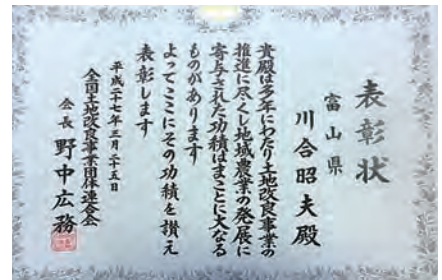 表彰状
富山県
川合昭夫殿
貴殿は多年にわたり土地改良事業の
推進に尽くし地域農業の発展に
寄与された功績はまことに大なる
ものがあります
よってここにその功績を讃え
表彰します
平成二十七年三月二十五日
全国土地改良事業団体連合会
会長 野中広務